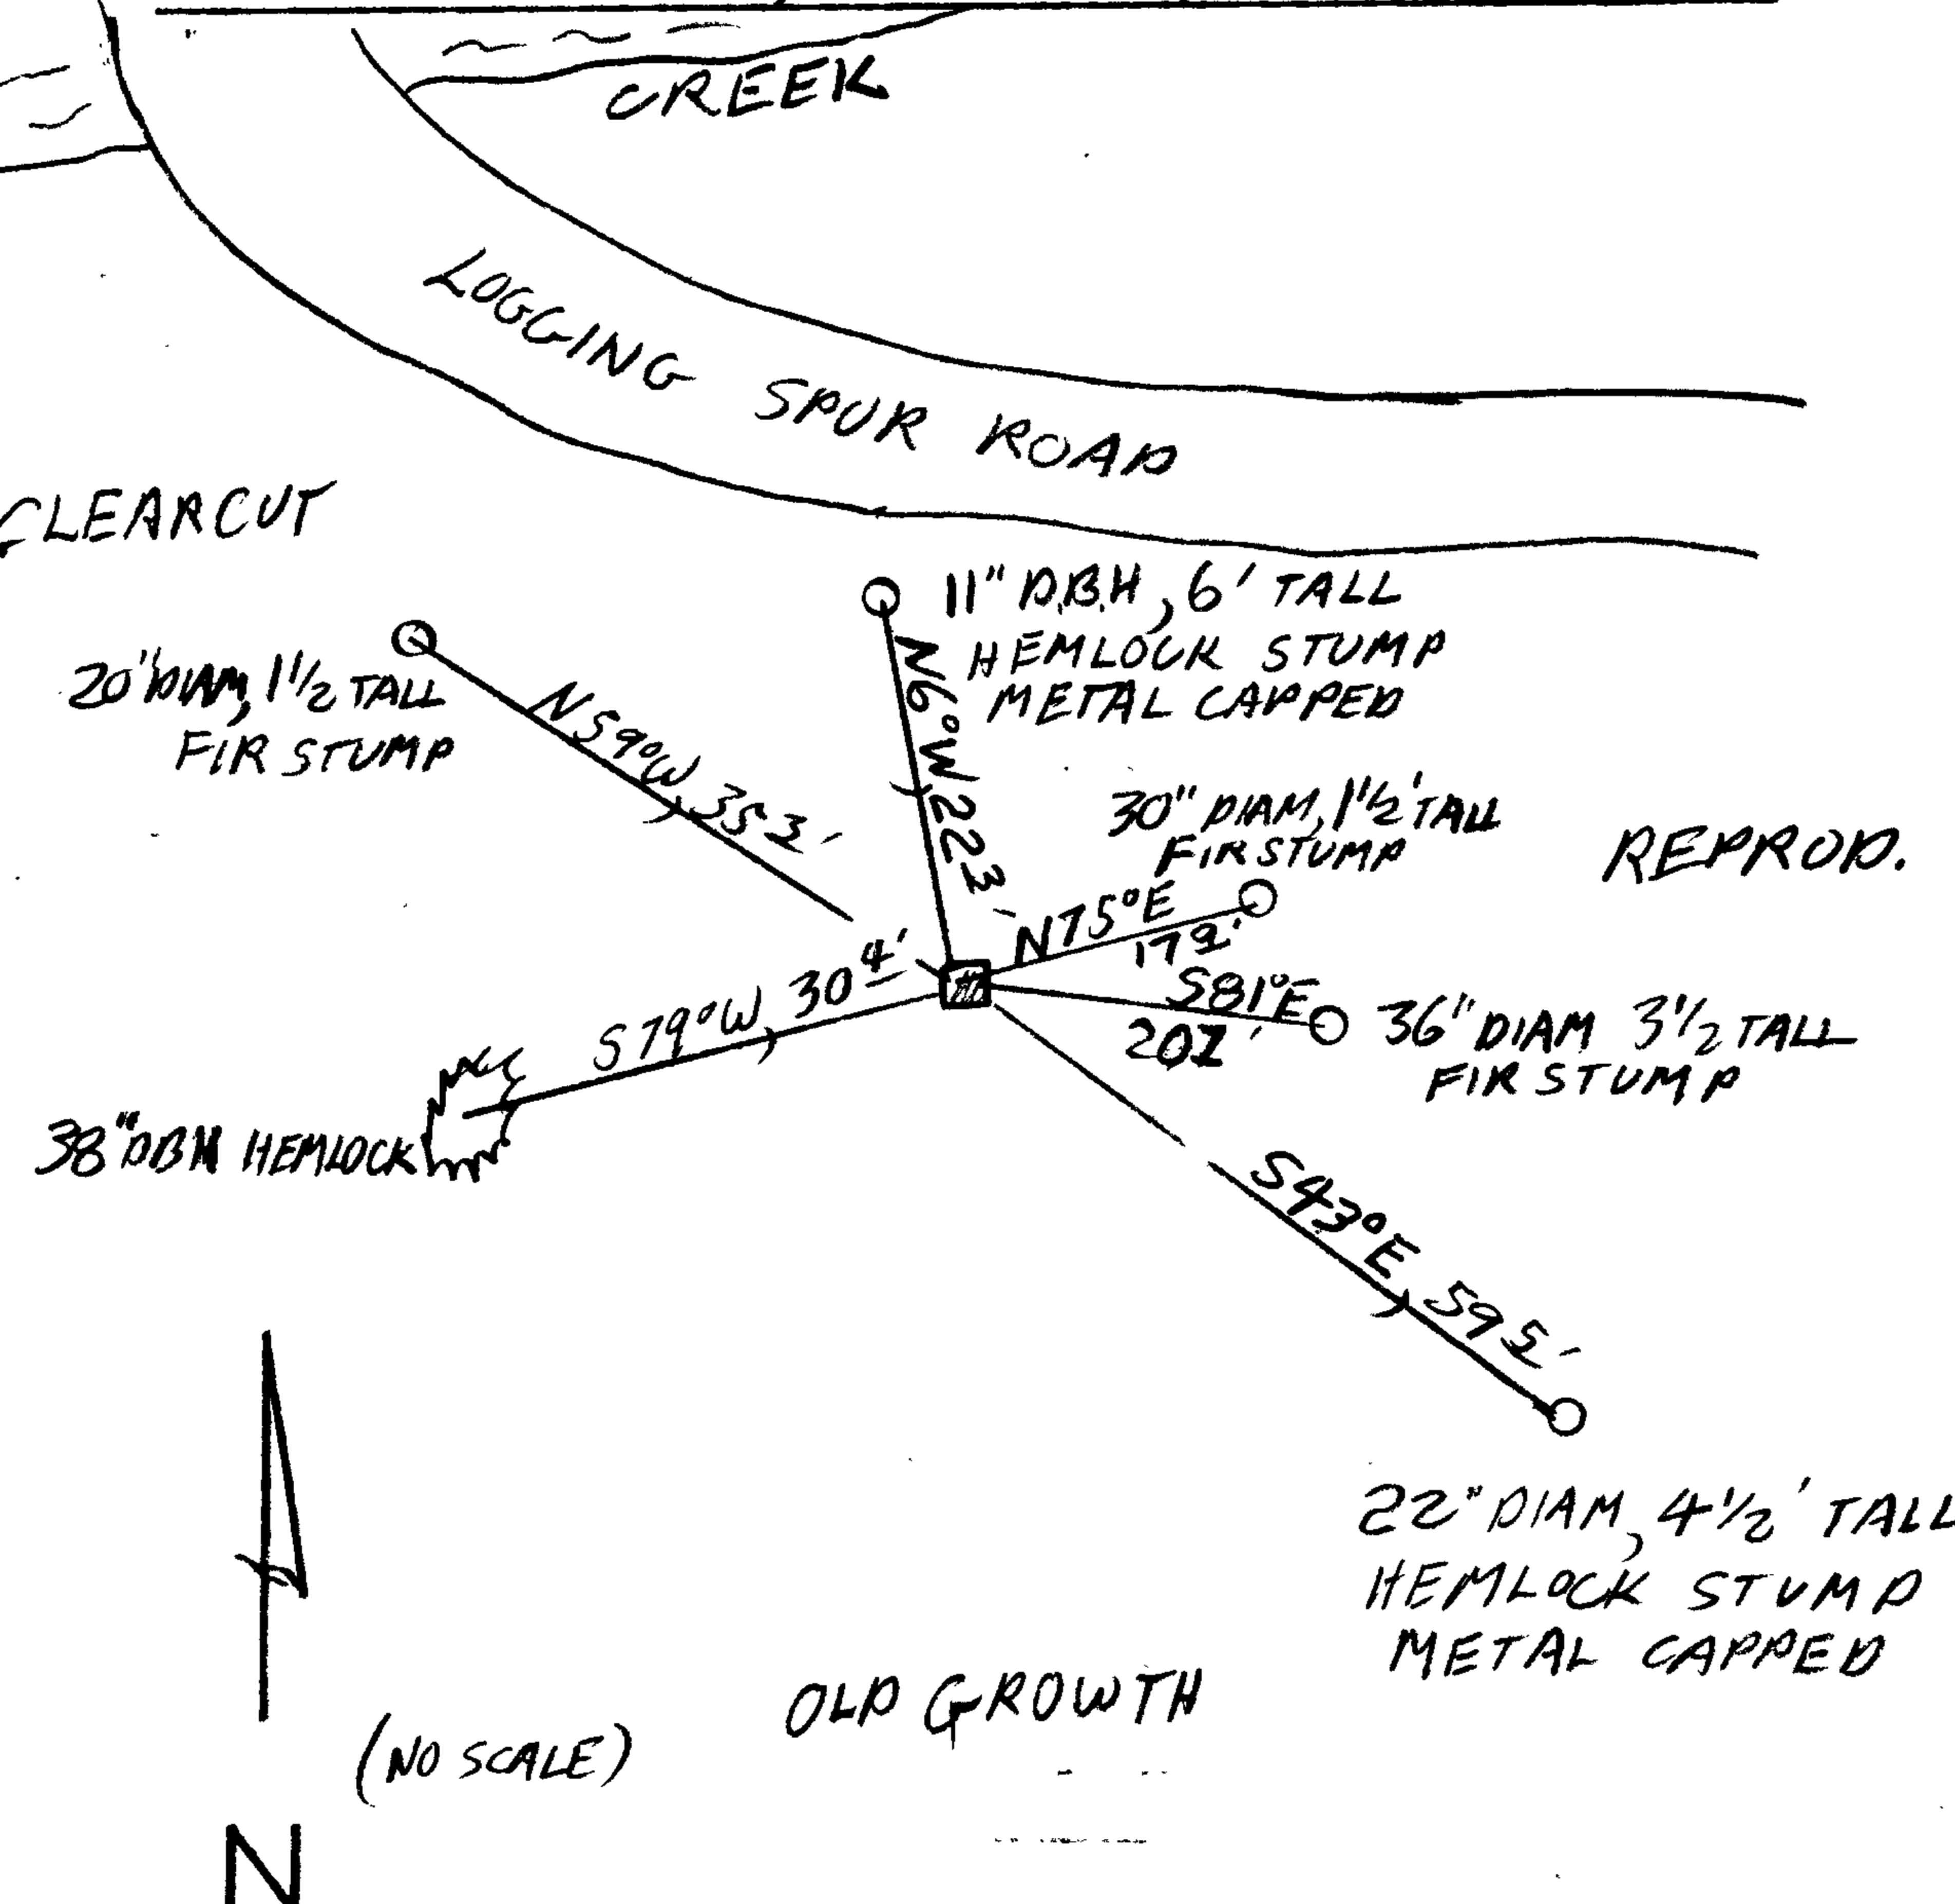 CREEK
LOGGING SPUR ROAD
CLEARCUT
11" D.B.H, 6' TALL
HEMLOCK STUMP
METAL CAPPED
20" DIAM, 1 1/2 TALL
FIR STUMP
N 59°W, 35 3'
N6°W, 22 3'
30" DIAM, 1 1/2' TALL
FIR STUMP
REPROD.
N75°E
17 9'
S81°E
20 1'
36" DIAM 3 1/2 TALL
FIR STUMP
S 79°W, 30 4'
38" DBH HEMLOCK
S43°E, 59 5'
22" DIAM, 4 1/2' TALL
HEMLOCK STUMP
METAL CAPPED
OLD GROWTH
(NO SCALE)
N